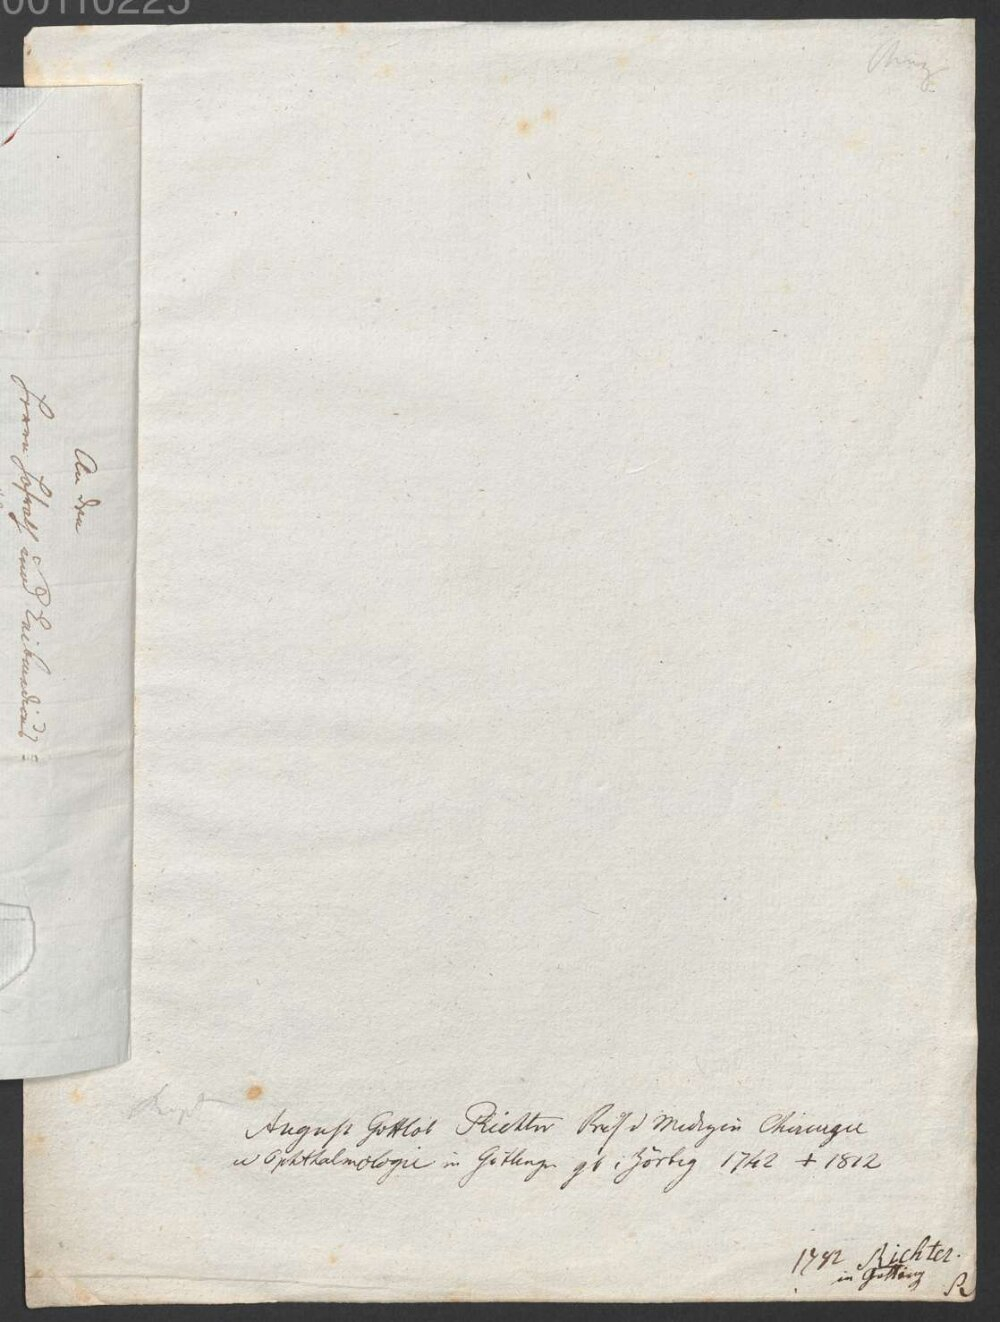 00110225
Chirg
An den
Herrn Hofrath und Leibmedicus
August Gottlob Richter Prof d Medizin Chirurgie
u Ophthalmologie in Götting gb i Zörbig 1742 + 1812
1792 Richter.
in Götting